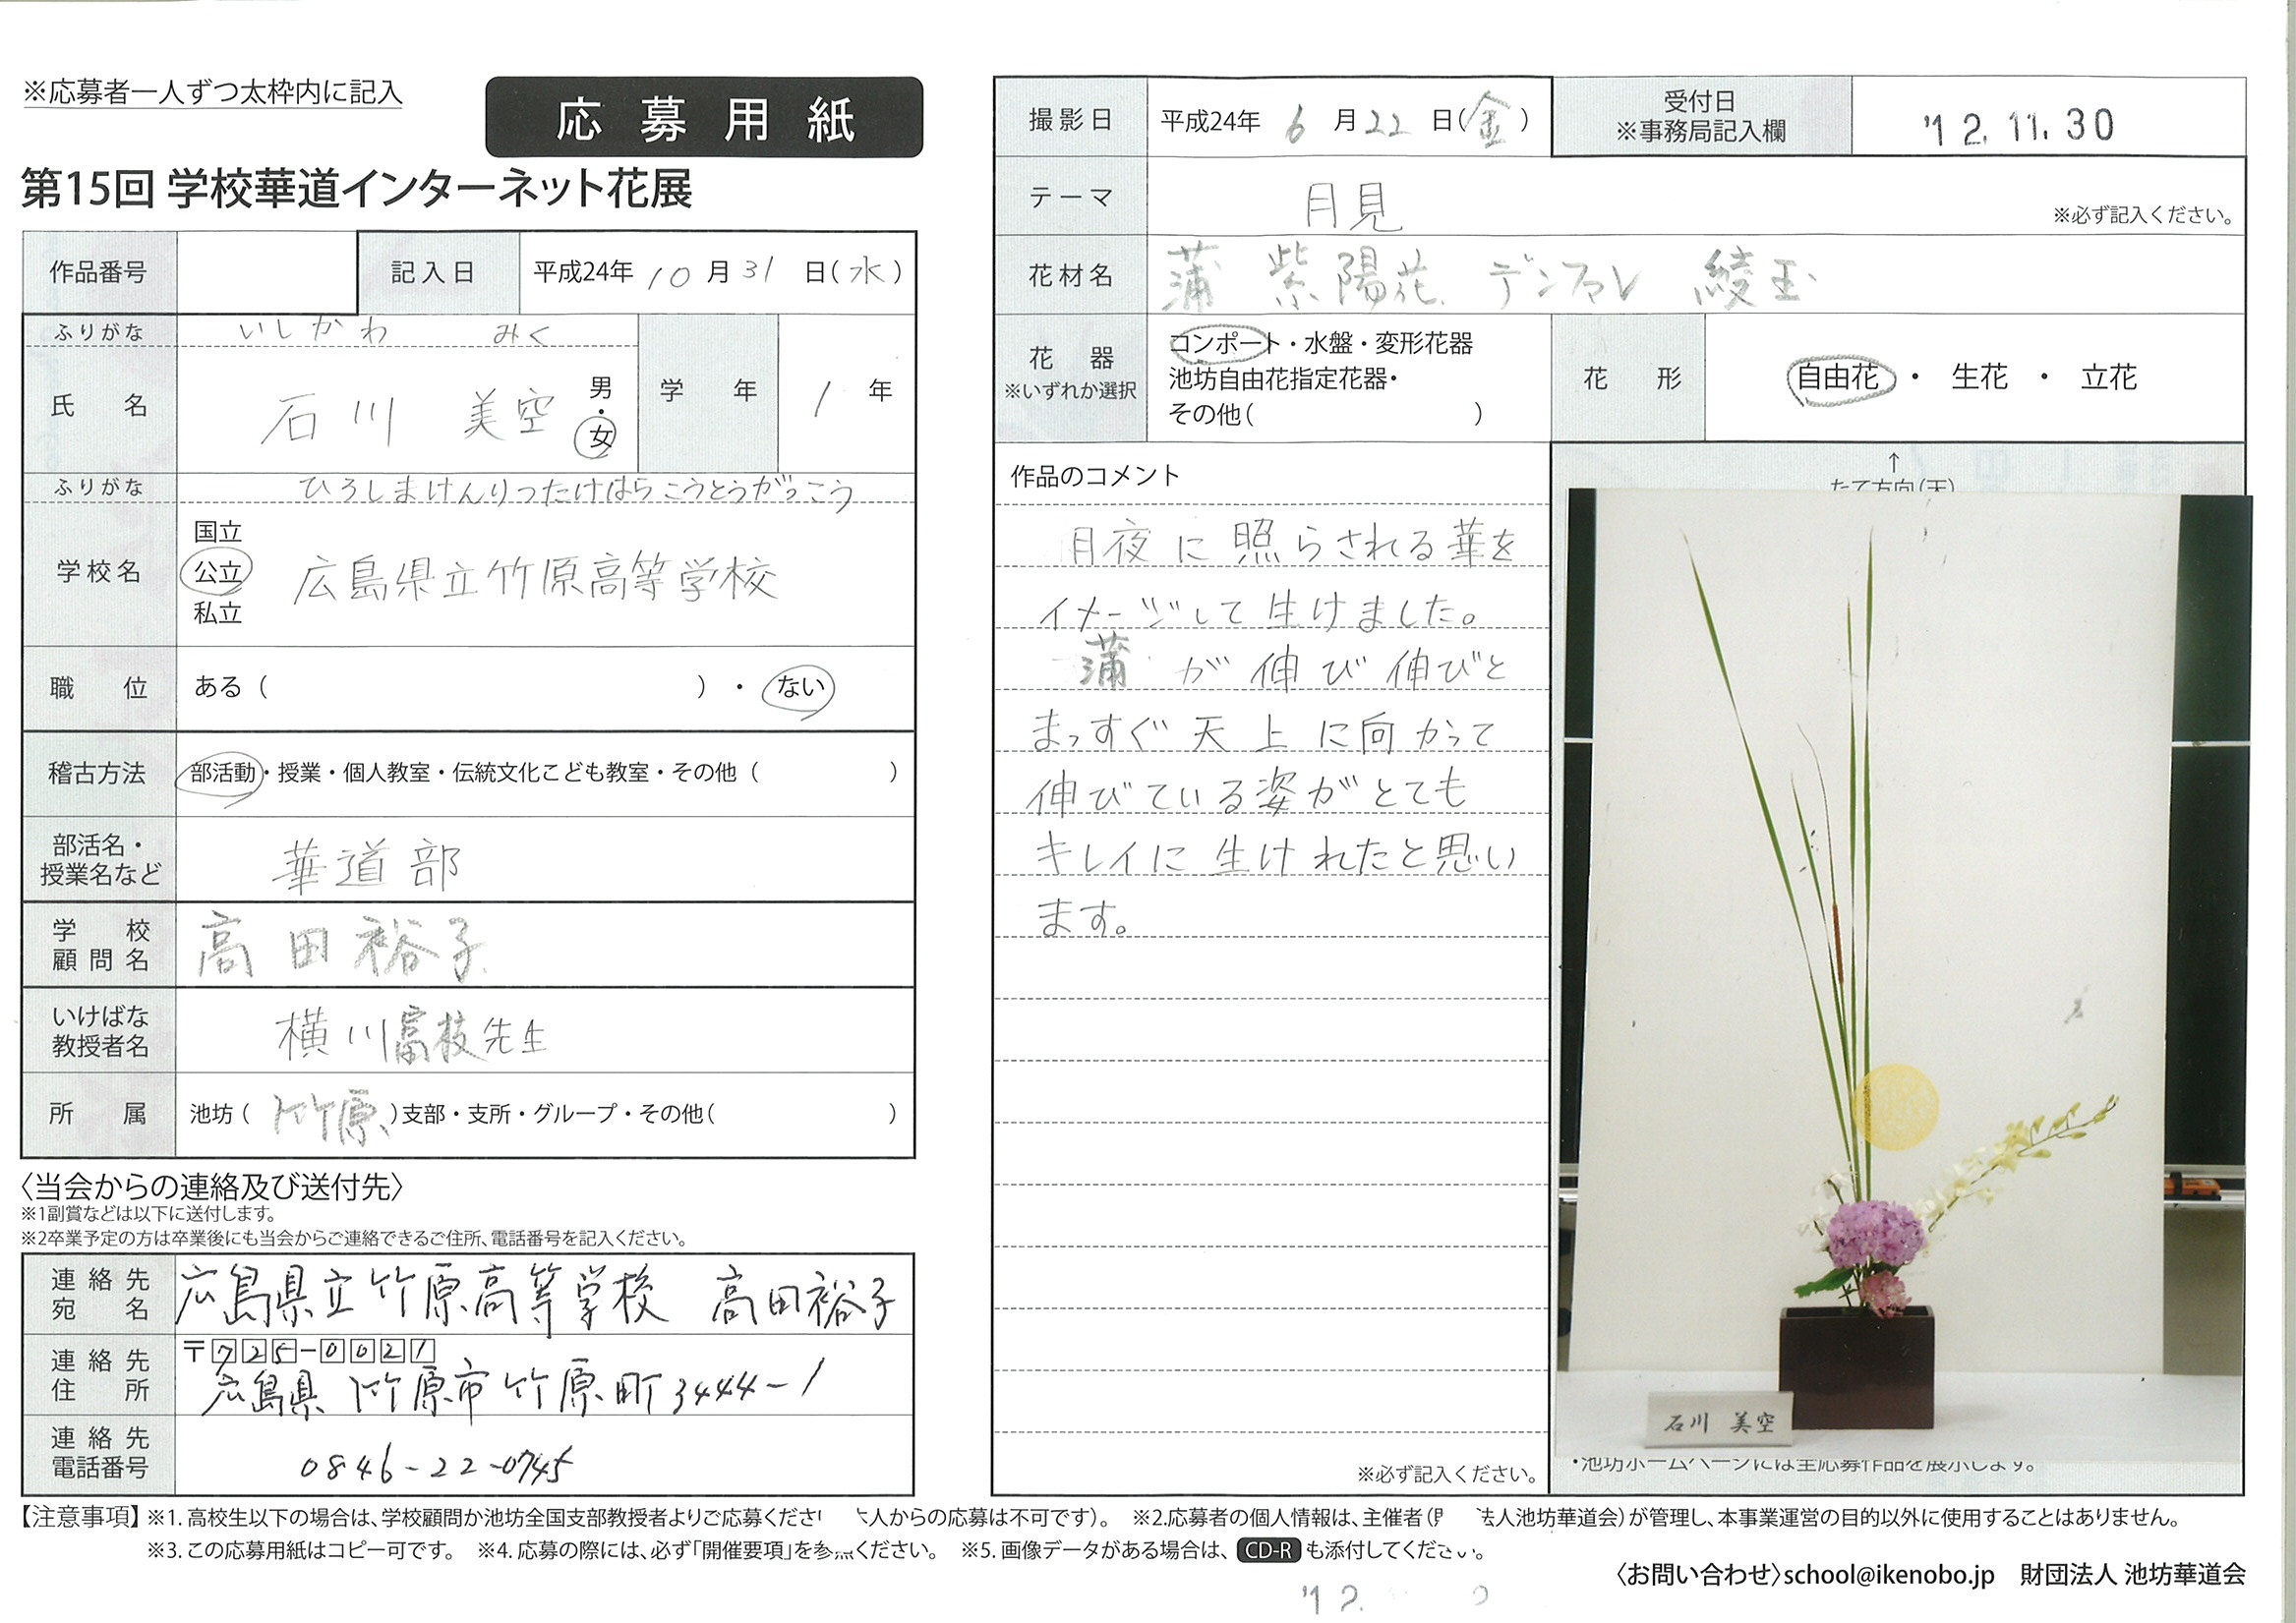 ※応募者一人ずつ太枠内に記入
応募用紙
第15回 学校華道インターネット花展
作品番号
記入日 平成24年 10月 31日(水)
ふりがな いしかわ みく
氏名 石川 美空 男・女
学年 1年
ふりがな ひろしまけんりつたけはらこうとうがっこう
学校名 国立 公立 私立 広島県立竹原高等学校
職位 ある( )・ない
稽古方法 部活動・授業・個人教室・伝統文化こども教室・その他( )
部活名・授業名など 華道部
学校顧問名 高田裕子
いけばな教授者名 横川富枝先生
所属 池坊(竹原)支部・支所・グループ・その他( )
〈当会からの連絡及び送付先〉
※1副賞などは以下に送付します。
※2卒業予定の方は卒業後にも当会からご連絡できるご住所、電話番号を記入ください。
連絡先宛名 広島県立竹原高等学校 高田裕子
連絡先住所 〒725-0021
広島県竹原市竹原町3444-1
連絡先電話番号 0846-22-0745
撮影日 平成24年 6月22日(金)
受付日 ※事務局記入欄 '12.11.30
テーマ 月見 ※必ず記入ください。
花材名 蒲 紫陽花 デンファレ 綾玉
花器 ※いずれか選択
コンポート・水盤・変形花器
池坊自由花指定花器・
その他( )
花形 自由花・生花・立花
作品のコメント
月夜に照らされる華を
イメージして生けました。
蒲が伸び伸びと
まっすぐ天上に向かって
伸びている姿がとても
キレイに生けれたと思い
ます。
※必ず記入ください。
↑
たて方向(天)
石川 美空
・池坊ホームページには全応募作品を展示します。
【注意事項】※1.高校生以下の場合は、学校顧問か池坊全国支部教授者よりご応募くださ 人からの応募は不可です)。 ※2.応募者の個人情報は、主催者( 法人池坊華道会)が管理し、本事業運営の目的以外に使用することはありません。
※3.この応募用紙はコピー可です。 ※4.応募の際には、必ず「開催要項」を参 ください。 ※5.画像データがある場合は、CD-Rも添付してください。
〈お問い合わせ〉school@ikenobo.jp 財団法人 池坊華道会
'12.